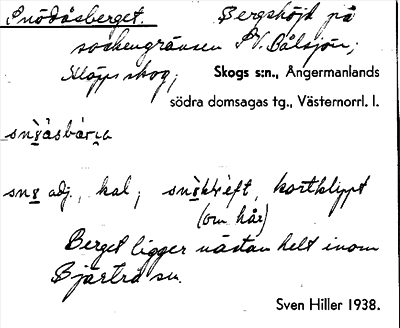 Snödåsberget. Bergshöjd på
sockengränsen S.V. Bålsjön,
Kläpps skog,
Skogs s:n., Ångermanlands
södra domsagas tg., Västernorrl. l.
adj., kal; kortklippt
(om hår)
Berget ligger nästan helt inom
Bjärtrå sn.
Sven Hiller 1938.